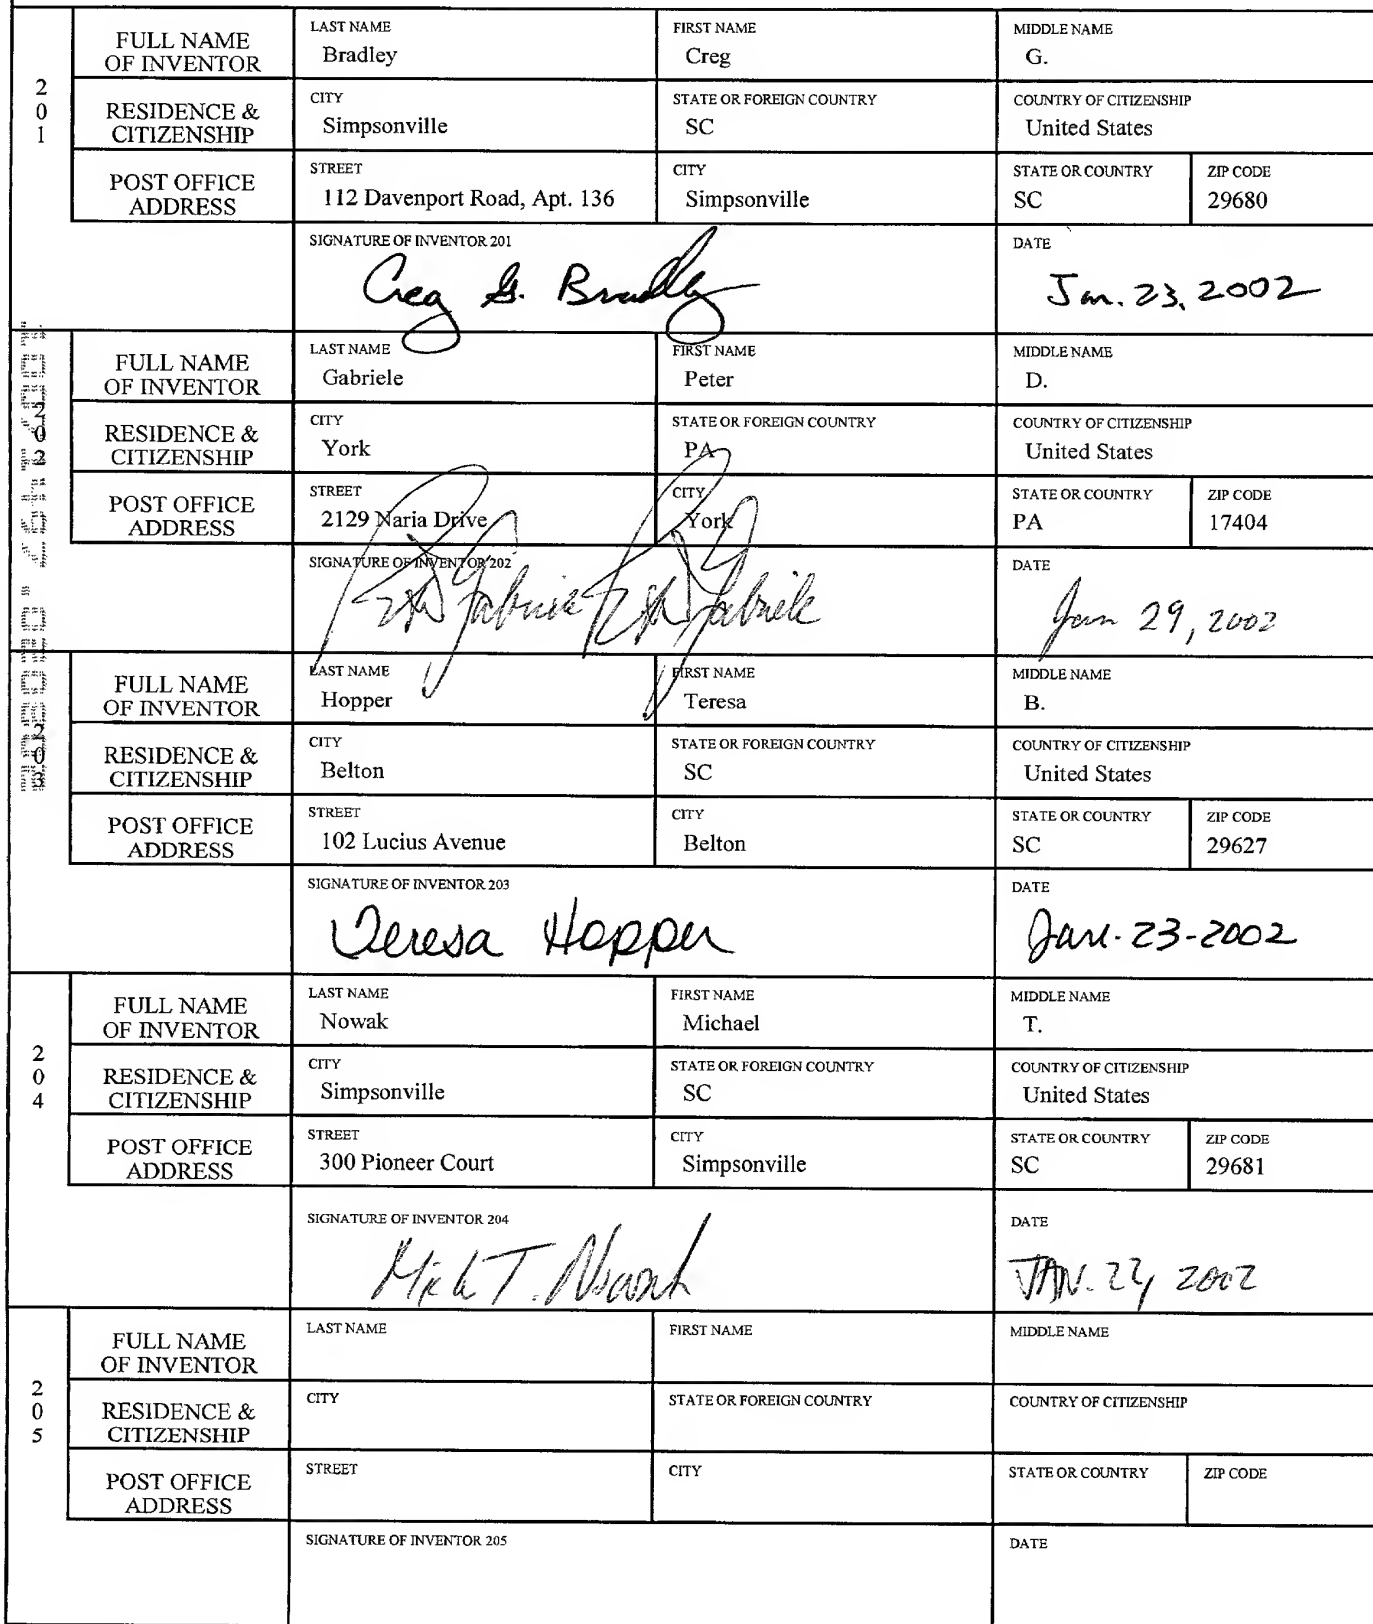 FULL NAME OF INVENTOR
LAST NAME
Bradley
FIRST NAME
Creg
MIDDLE NAME
G.
201
RESIDENCE & CITIZENSHIP
CITY
Simpsonville
STATE OR FOREIGN COUNTRY
SC
COUNTRY OF CITIZENSHIP
United States
POST OFFICE ADDRESS
STREET
112 Davenport Road, Apt. 136
CITY
Simpsonville
STATE OR COUNTRY
SC
ZIP CODE
29680
SIGNATURE OF INVENTOR 201
Creg G. Bradley
DATE
Jan. 23, 2002
FULL NAME OF INVENTOR
LAST NAME
Gabriele
FIRST NAME
Peter
MIDDLE NAME
D.
202
RESIDENCE & CITIZENSHIP
CITY
York
STATE OR FOREIGN COUNTRY
PA
COUNTRY OF CITIZENSHIP
United States
POST OFFICE ADDRESS
STREET
2129 Naria Drive
CITY
York
STATE OR COUNTRY
PA
ZIP CODE
17404
SIGNATURE OF INVENTOR 202
Gabriele Gabriele
DATE
Jan 29, 2002
FULL NAME OF INVENTOR
LAST NAME
Hopper
FIRST NAME
Teresa
MIDDLE NAME
B.
203
RESIDENCE & CITIZENSHIP
CITY
Belton
STATE OR FOREIGN COUNTRY
SC
COUNTRY OF CITIZENSHIP
United States
POST OFFICE ADDRESS
STREET
102 Lucius Avenue
CITY
Belton
STATE OR COUNTRY
SC
ZIP CODE
29627
SIGNATURE OF INVENTOR 203
Teresa Hopper
DATE
Jan. 23-2002
FULL NAME OF INVENTOR
LAST NAME
Nowak
FIRST NAME
Michael
MIDDLE NAME
T.
204
RESIDENCE & CITIZENSHIP
CITY
Simpsonville
STATE OR FOREIGN COUNTRY
SC
COUNTRY OF CITIZENSHIP
United States
POST OFFICE ADDRESS
STREET
300 Pioneer Court
CITY
Simpsonville
STATE OR COUNTRY
SC
ZIP CODE
29681
SIGNATURE OF INVENTOR 204
T. Nowak
DATE
JAN. 2002
FULL NAME OF INVENTOR
LAST NAME
FIRST NAME
MIDDLE NAME
205
RESIDENCE & CITIZENSHIP
CITY
STATE OR FOREIGN COUNTRY
COUNTRY OF CITIZENSHIP
POST OFFICE ADDRESS
STREET
CITY
STATE OR COUNTRY
ZIP CODE
SIGNATURE OF INVENTOR 205
DATE